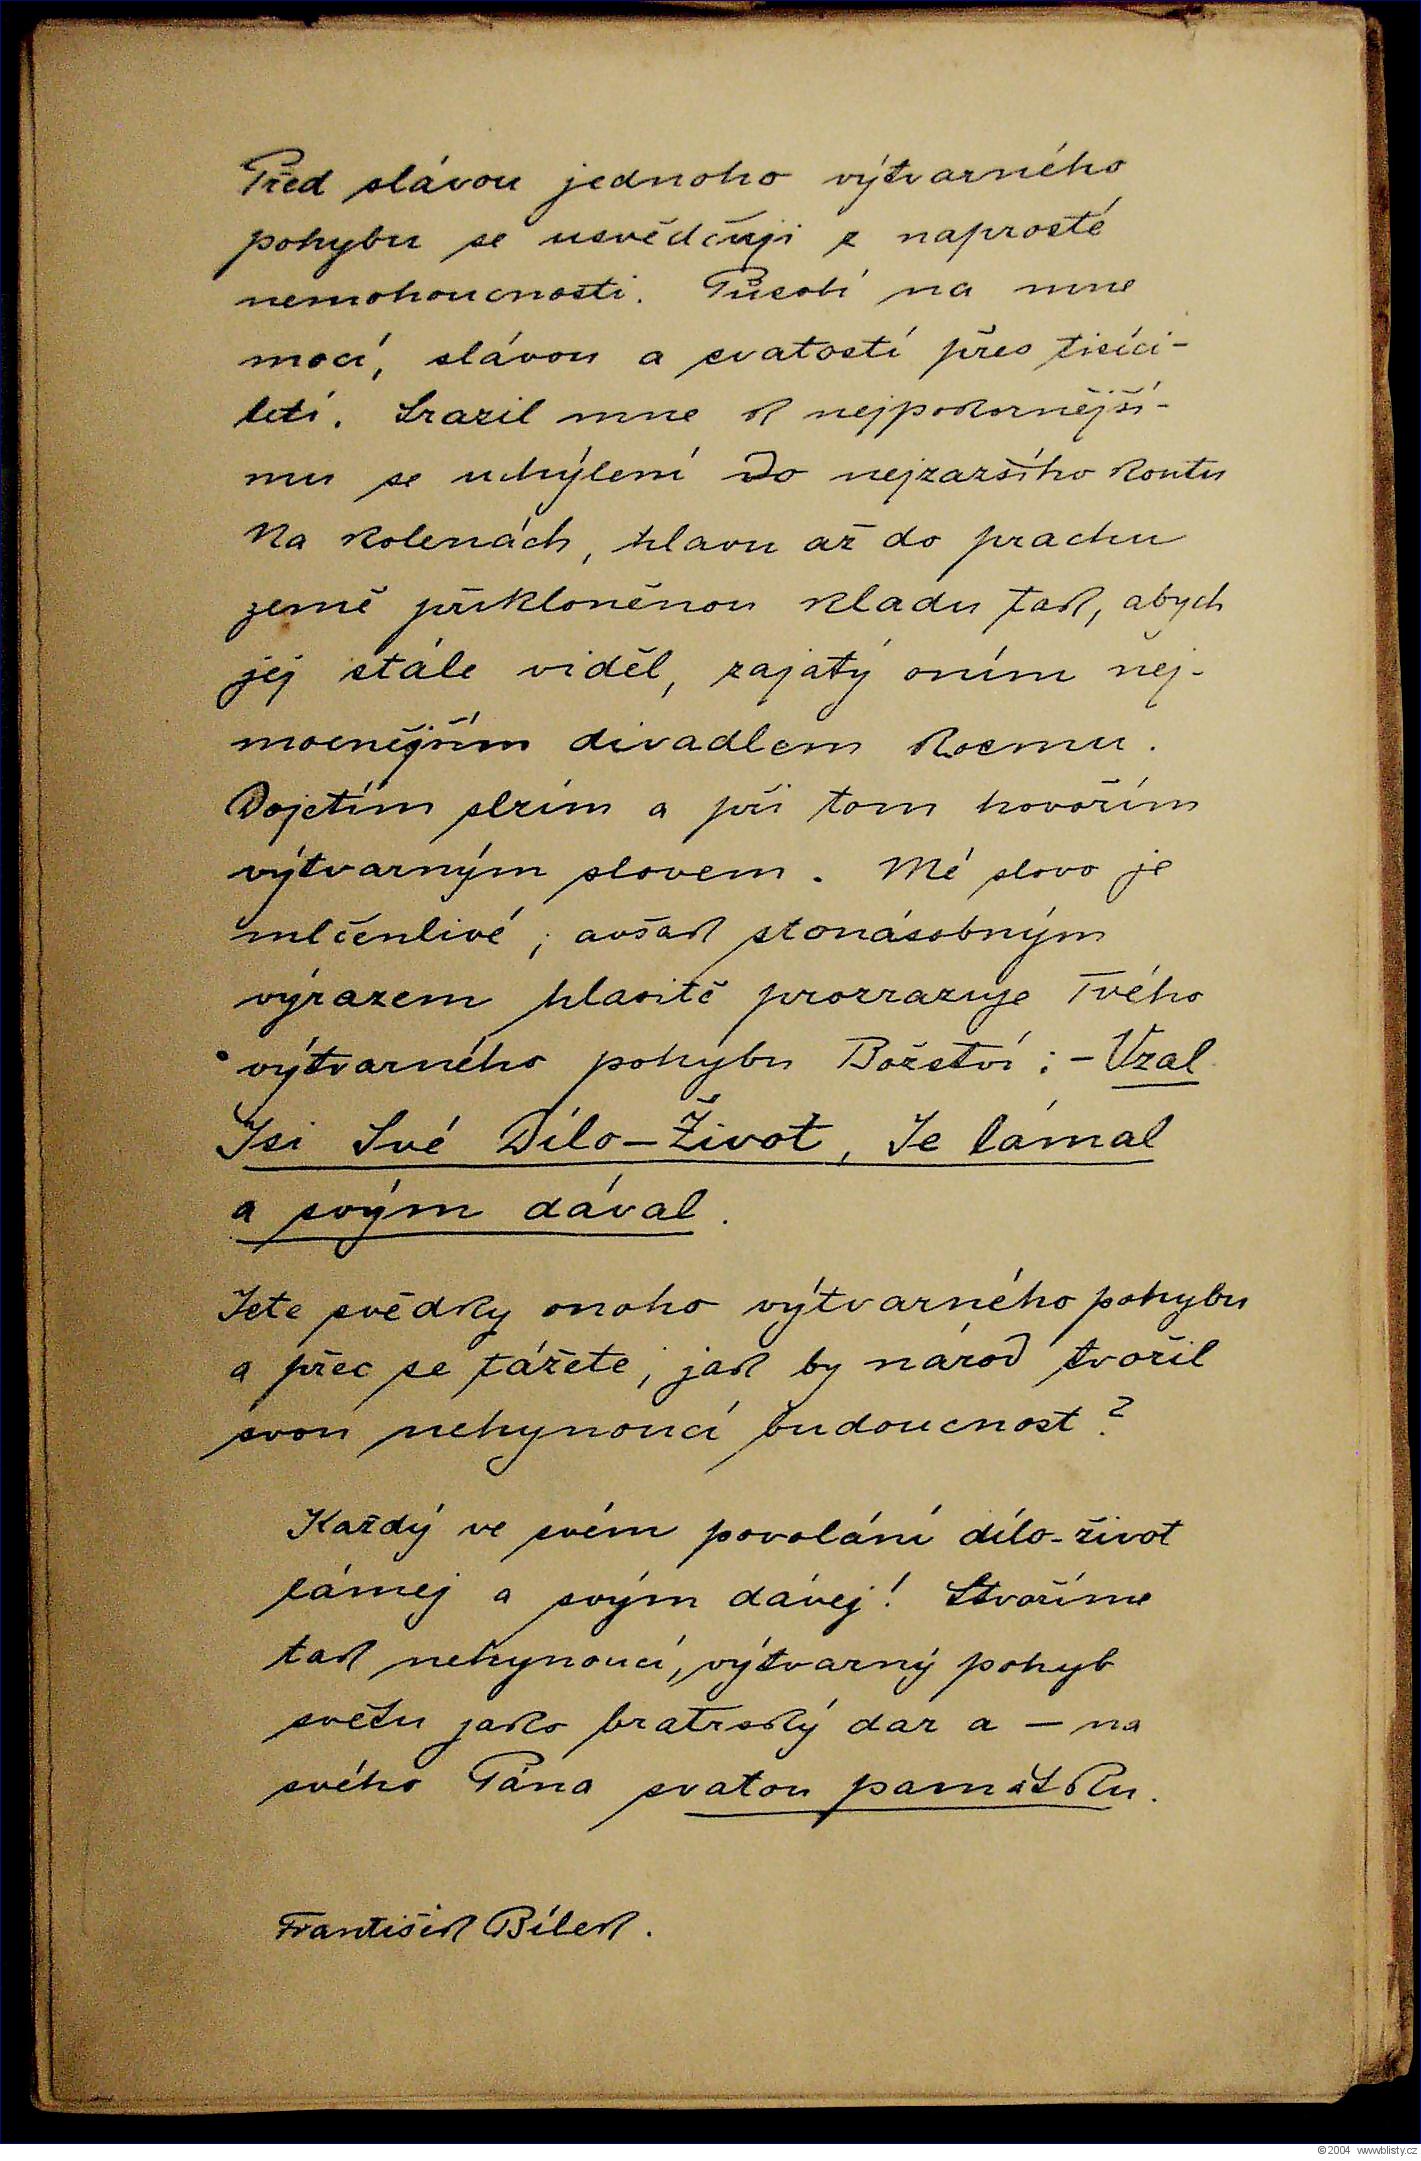 Před slávou jednoho výtvarného
pohybu se usvědčuji z naprosté
nemohoucnosti. Působí na mne
mocí, slávou a svatostí přes tisíci-
letí. Srazil mne k nejpokornější-
mu se uchýlení do nejzazšího koutu
Na kolenách, hlavu až do prachu
země přikloněnou kladu tak, abych
jej stále viděl, zajatý oním nej-
mocnějším divadlem kosmu.
Dojetím slzím a při tom hovořím
výtvarným slovem. Mé slovo je
mlčenlivé, avšak stonásobným
výrazem hlasitě prozrazuje Tvého
výtvarného pohybu Božství: - Vzal
Jsi Své Dílo-Život, Je lámal
a svým dával.
Jste svědky onoho výtvarného pohybu
a přec se tážete, jak by národ tvořil
svou nehynoucí budoucnost?
Každý ve svém povolání dílo-život
lámej a svým dávej! Stvoříme
tak nehynoucí, výtvarný pohyb
světu jako bratrský dar a - na
svého Pána svatou památku.
František Bílek.
©2004 www.blisty.cz